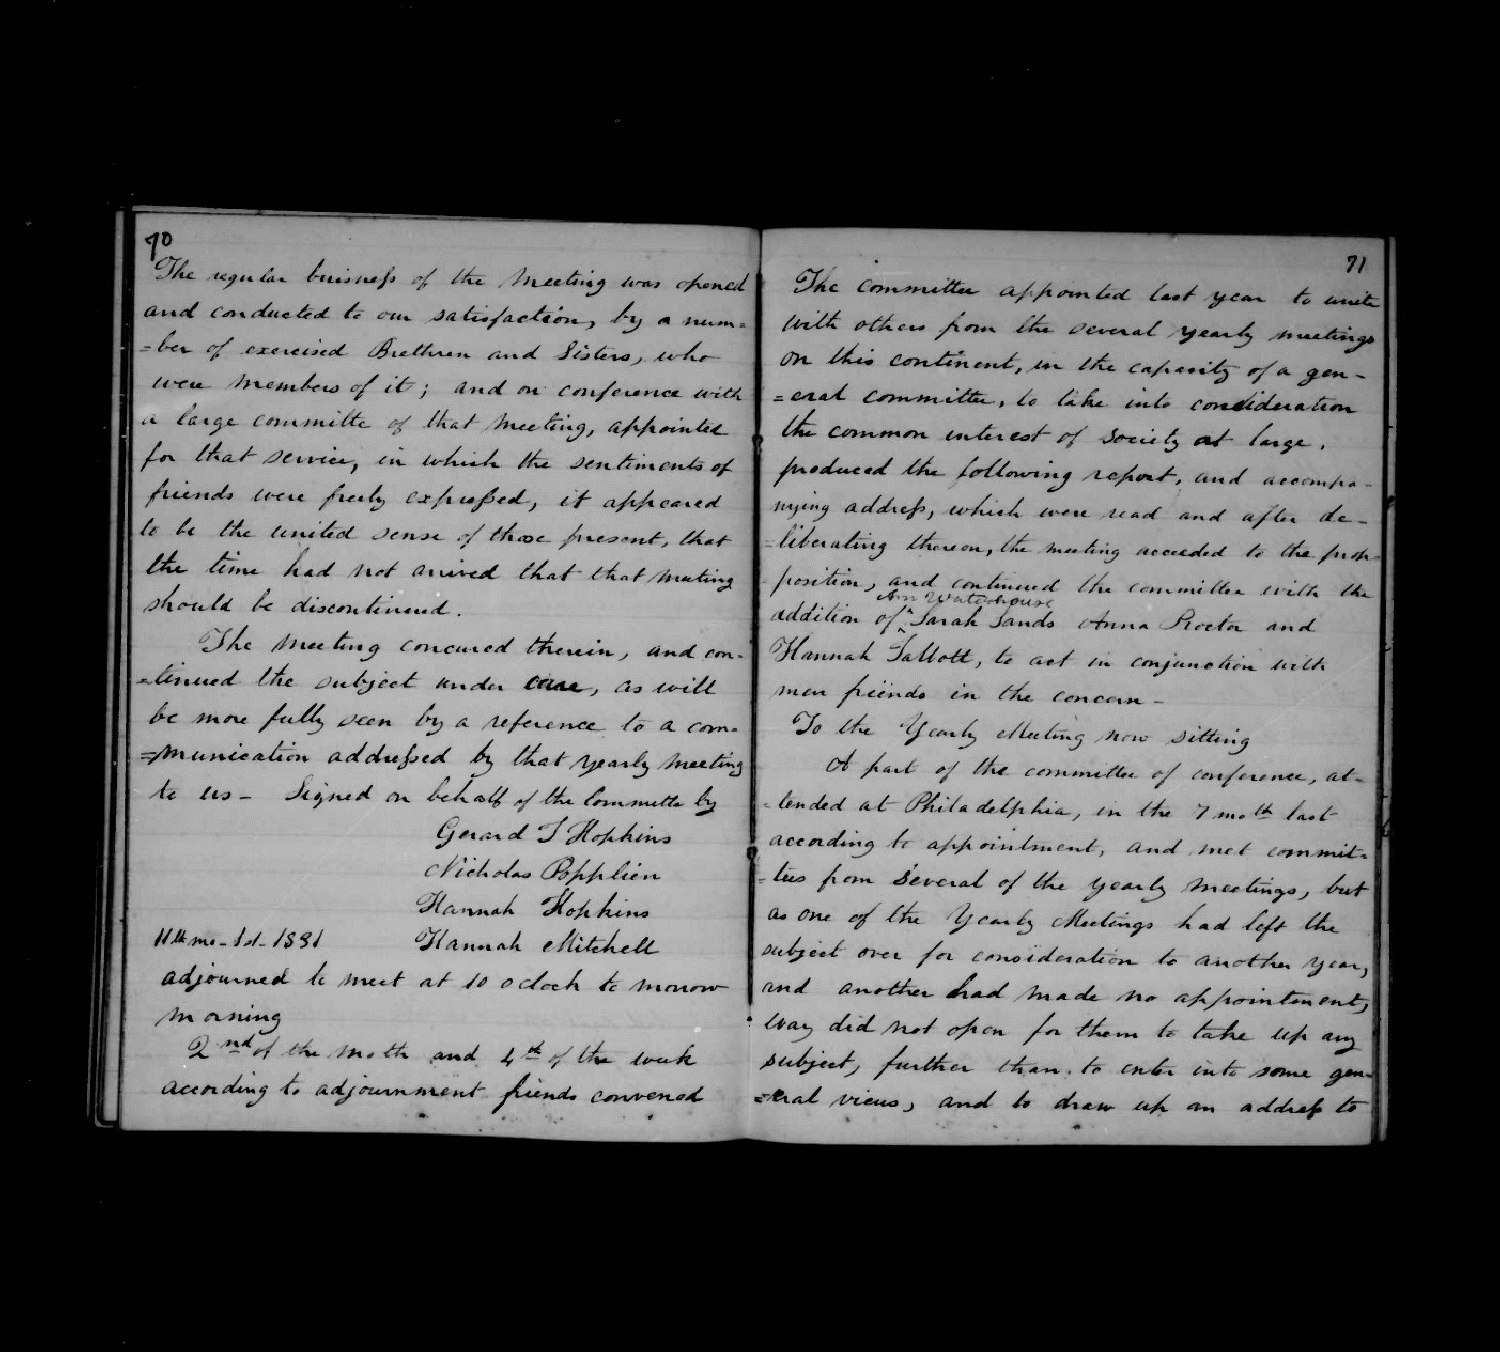 70
The regular buisness of the meeting was opened
and conducted to our satisfaction, by a num=
=ber of exercised Brethren and Sisters, who
were members of it; and on conference with
a large committe of that meeting, appointed
for that service, in which the sentiments of
friends were freely expressed, it appeared
to be the united sense of those present, that
the time had not arived that that meeting
should be discontinued.
The meeting concured therein, and con-
=tinued the subject under care, as will
be more fully seen by a reference to a com=
=munication addressed by that yearly meeting
to us - Signed on behalf of the Committe by
Gerard T Hopkins
Nicholas Popplien
Hannah Hopkins
11th mo - 1st - 1831 Hannah Mitchell
adjourned to meet at 10 oclock to morow
morning
2nd of the moth and 4th of the week
according to adjournment friends convened
71
The committee appointed last year to unite
with others from the several yearly meetings
on this continent, in the capasity of a gen-
=eral committee, to take into consideration
the common interest of society at large,
produced the following report, and accompa-
nying address, which were read and after de-
=liberating thereon, the meeting acceeded to the prop=
position, and continued the committee with the
Ann Waterhouse
addition of ^ Sarah Sands Anna Proctor and
Hannah Talbott, to act in conjunction with
men friends in the concern -
To the Yearly Meeting now sitting
A part of the committee of conference, at-
=tended at Philadelphia, in the 7 moth last
according to appointment, and met commit=
=tees from several of the yearly meetings, but
as one of the Yearly Meetings had left the
subject over for consideration to another year,
and another had made no appointment,
way did not open for them to take up any
subject, further than to enter into some gen-
=eral views, and to draw up an address to